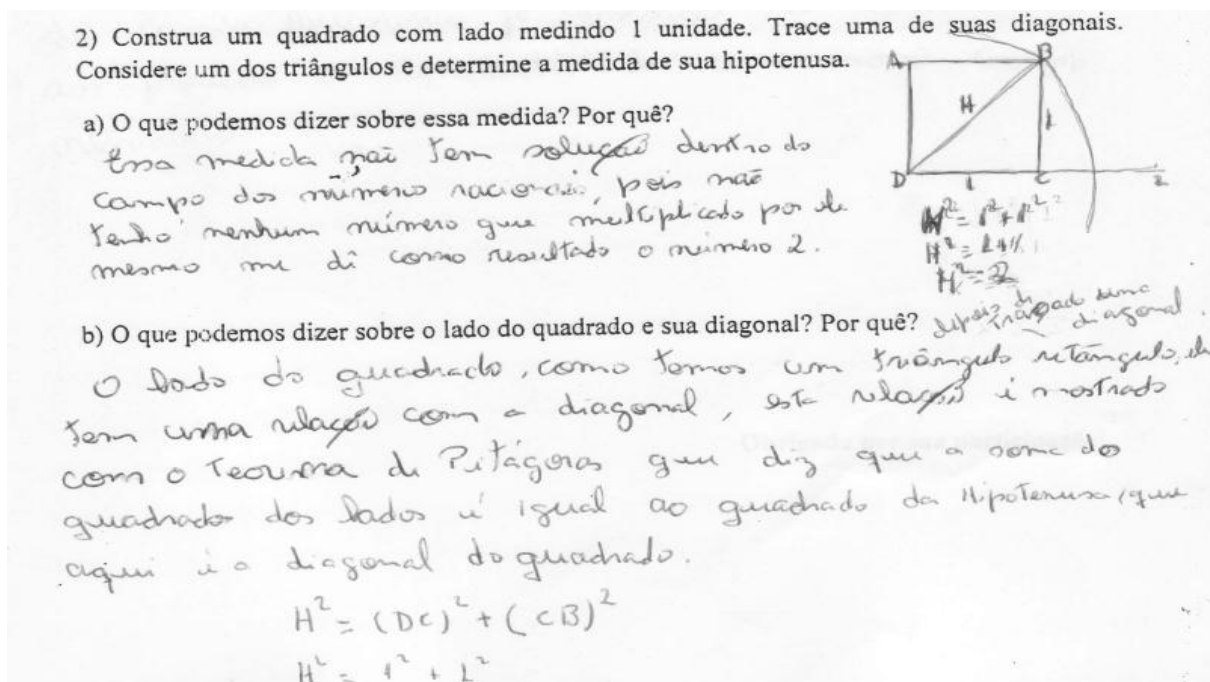 2) Construa um quadrado com lado medindo 1 unidade. Trace uma de suas diagonais.
Considere um dos triângulos e determine a medida de sua hipotenusa.
A
B
H
1
D
1
C
2
a) O que podemos dizer sobre essa medida? Por quê?
Essa medida não tem solução dentro do
campo dos número racionais, pois não
tenho nenhum número que multiplicado por ele
mesmo me dê como resultado o número 2.
H² = 1² + 1²
H² = 1+1
H² = 2
b) O que podemos dizer sobre o lado do quadrado e sua diagonal? Por quê?
depois de traçado uma
diagonal.
O lado do quadrado, como temos um triângulo retângulo, ele
tem uma relação com a diagonal, esta relação é mostrado
com o Teorema de Pitágoras que diz que a soma do
quadrado dos lados é igual ao quadrado da Hipotenusa, que
aqui é a diagonal do quadrado.
H² = (DC)² + (CB)²
H² = 1² + 1²